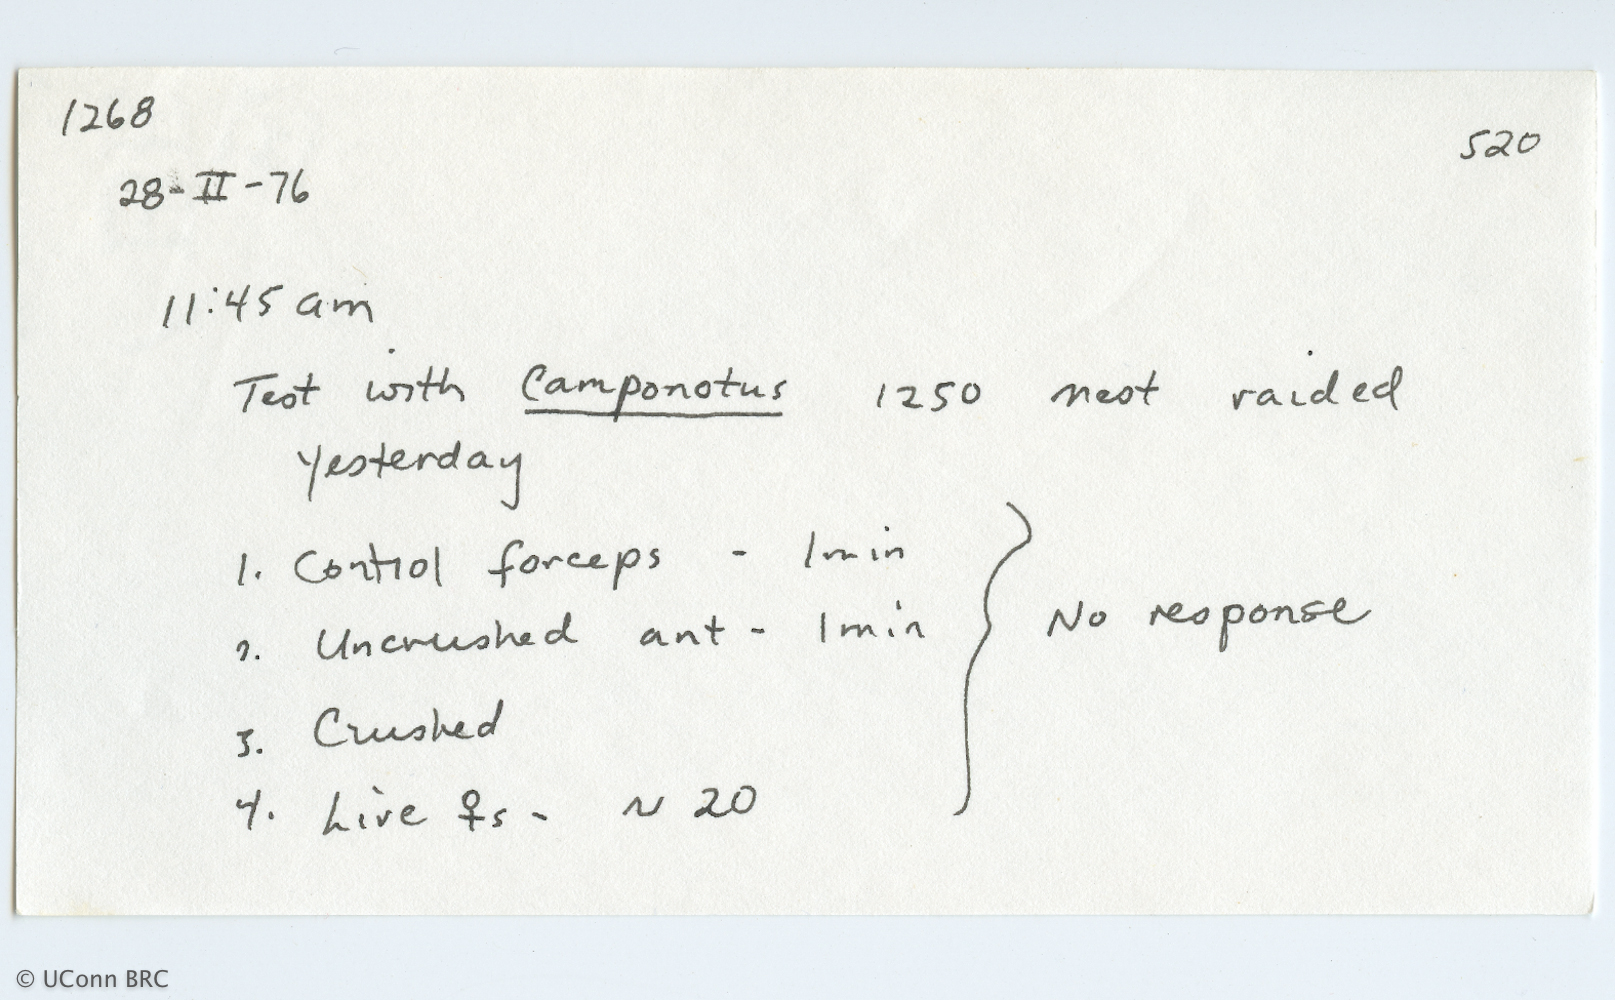 1268
520
28-II-76
11:45 am
Test with Camponotus 1250 nest raided
yesterday
1. Control forceps - 1min
2. Uncrushed ant - 1min
3. Crushed
4. Live ♀s - ~ 20
No response
© UConn BRC